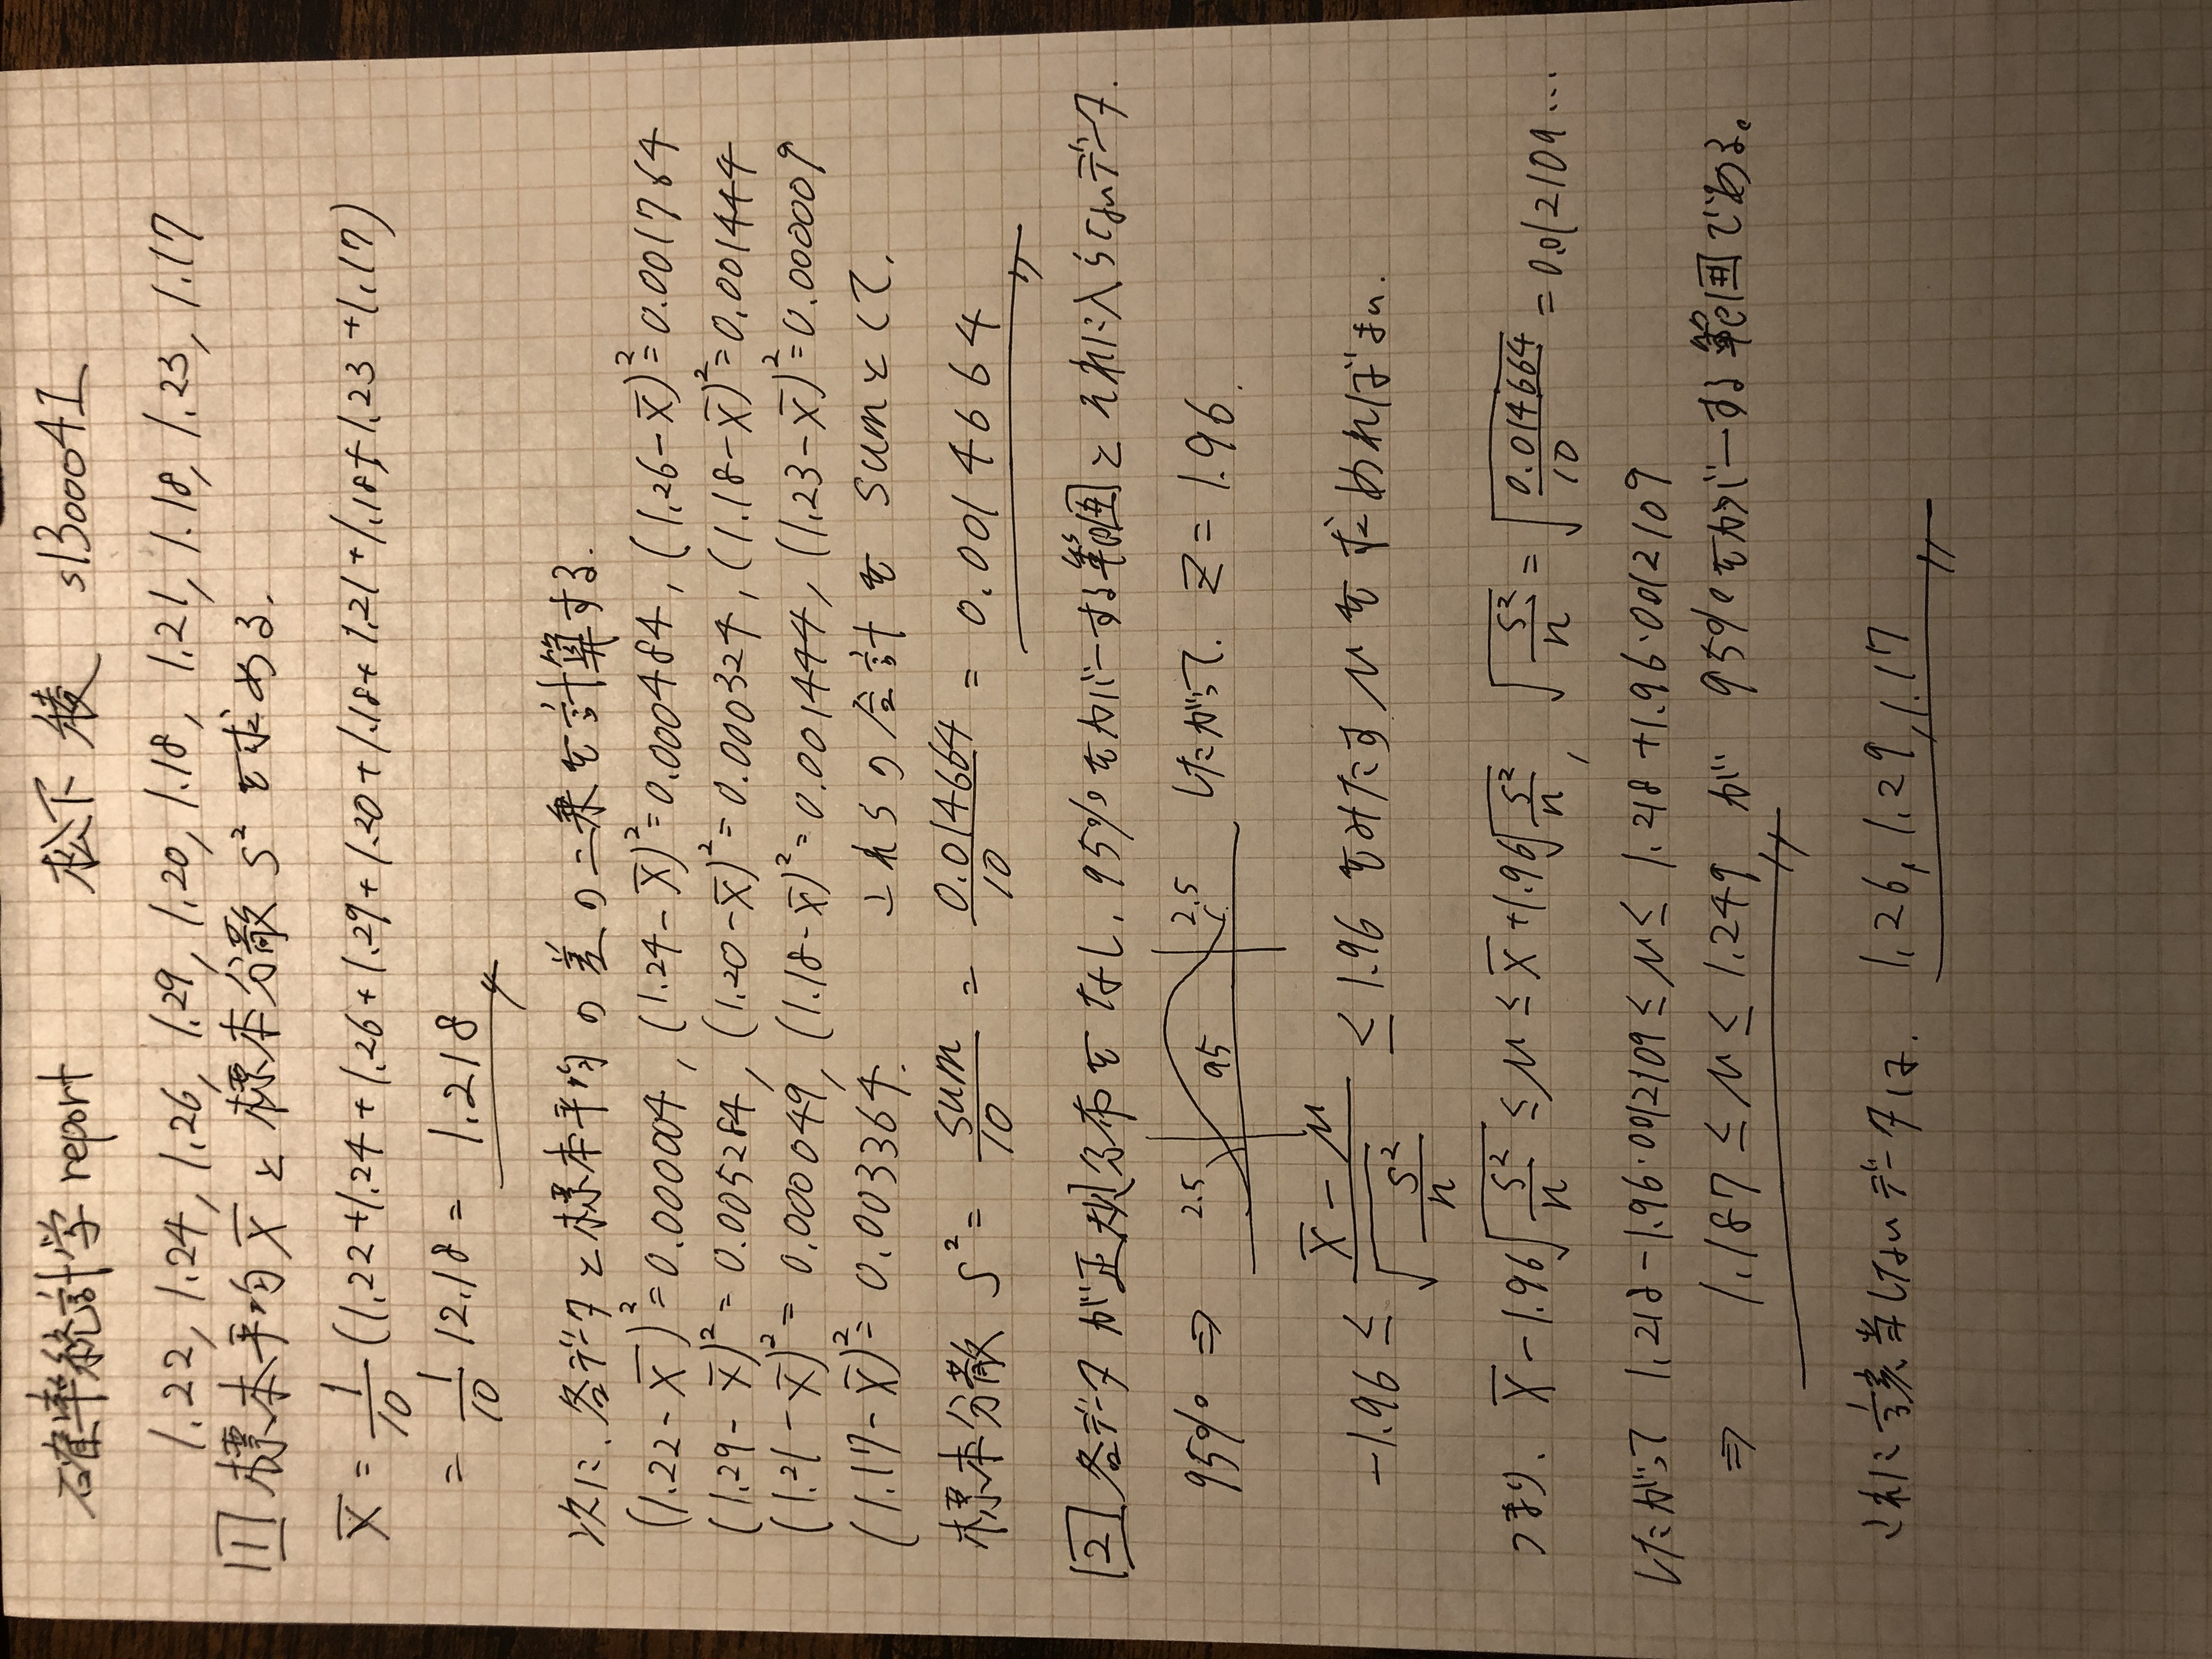 確率統計学 report 松下 稜 s1300041
1.22, 1.24, 1.26, 1.29, 1.20, 1.18, 1.21, 1.18, 1.23, 1.17
[1] 標本平均 X̄ と 標本分散 S² を求める.
X̄ = 1/10 (1.22+1.24+1.26+1.29+1.20+1.18+1.21+1.18+1.23+1.17)
= 1/10 12.18 = 1.218
次に、各データと標本平均の差の二乗を計算する.
(1.22-X̄)²=0.000004, (1.24-X̄)²=0.000484, (1.26-X̄)²=0.001764
(1.29-X̄)²=0.005284, (1.20-X̄)²=0.000324, (1.18-X̄)²=0.001444
(1.21-X̄)²=0.000049, (1.18-X̄)²=0.001444, (1.23-X̄)²=0.000009
(1.17-X̄)²=0.003364. これらの合計を sumとして.
標本分散 S² = sum/10 = 0.014664/10 = 0.0014664
[2] 各データが正規分布をなし, 95%をカバーする範囲とそれに入らないデータ.
95% ⇒ 2.5 95 2.5 したがって. Z = 1.96.
-1.96 ≤ (X̄-μ)/√(S²/n) ≤ 1.96 をみたす μ を求めればよい.
つまり. X̄-1.96√(S²/n) ≤ μ ≤ X̄+1.96√(S²/n), √(S²/n) = √(0.014664/10) = 0.012109…
したがって 1.218-1.96·0012109 ≤ μ ≤ 1.218+1.96·0012109
⇒ 1.187 ≤ μ ≤ 1.249 が 95%をカバーする範囲である。
これに該当しないデータは. 1.26, 1.29, 1.17